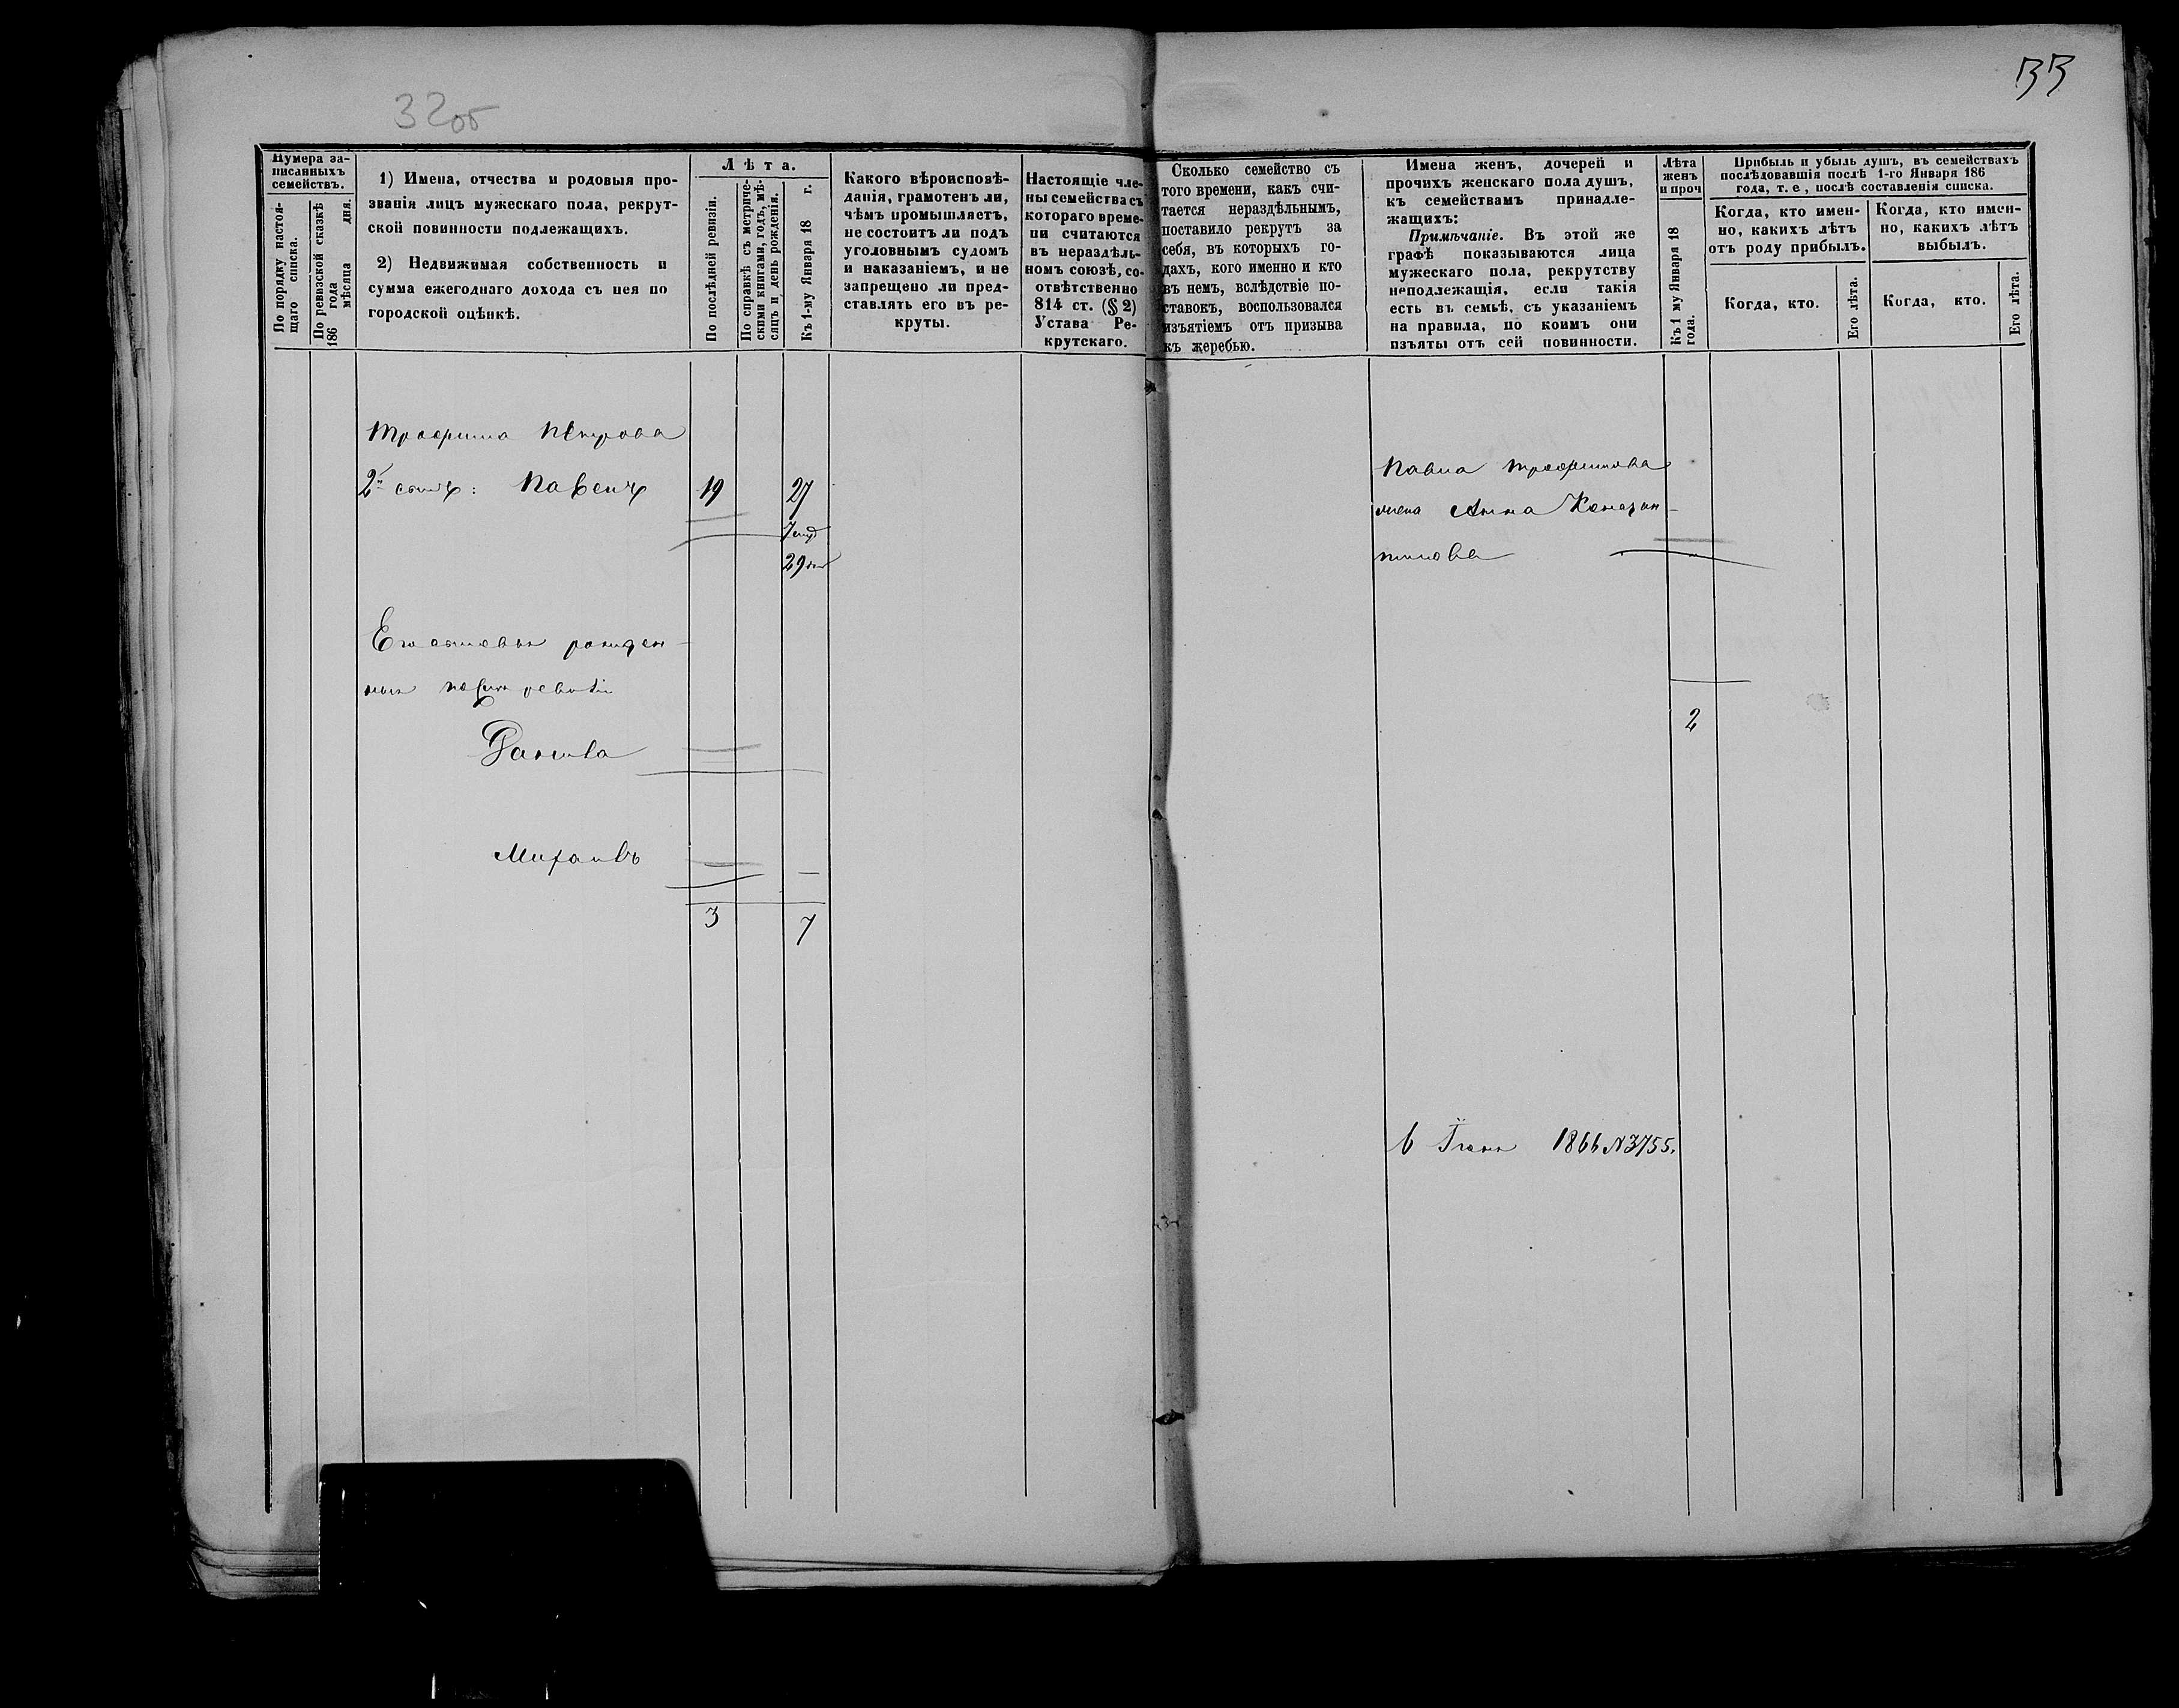 32об
33
Нумера за-
писанныхъ
семействъ.
По порядку настоя-
щаго списка.
По ревизской сказкѣ
186 года мѣсяца дня.
1) Имена, отчества и родовыя про-
званія лицъ мужескаго пола, рекрут-
ской повинности подлежащихъ.
2) Недвижимая собственность и
сумма ежегоднаго дохода съ нея по
городской оцѣнкѣ.
Лѣта.
По послѣдней ревизіи.
По справкѣ съ метриче-
скими книгами, годъ, мѣ-
сяцъ и день рожденія.
Къ 1-му Января 18 г.
Какого вѣроисповѣ-
данія, грамотенъ ли,
чѣмъ промышляетъ,
не состоитъ ли подъ
уголовнымъ судомъ
и наказаніемъ, и не
запрещено ли пред-
ставлять его въ ре-
круты.
Настоящіе чле-
ны семейства съ
котораго време-
ни считаются
въ нераздѣль-
номъ союзѣ, со-
отвѣтственно
814 ст. (§ 2)
Устава Ре-
крутскаго.
Сколько семейство съ
того времени, какъ счи-
тается нераздѣльнымъ,
поставило рекрутъ за
себя, въ которыхъ го-
дахъ, кого именно и кто
въ немъ, вслѣдствіе по-
ставокъ, воспользовался
изъятіемъ отъ призыва
къ жеребью.
Имена женъ, дочерей и
прочихъ женскаго пола душъ,
къ семействамъ принадле-
жащихъ:
Примѣчаніе. Въ этой же
графѣ показываются лица
мужескаго пола, рекрутству
неподлежащія, если такія
есть въ семьѣ, съ указаніемъ
на правила, по коимъ они
изъяты отъ сей повинности.
Лѣта
женъ
и проч
Къ 1 му Января 18
года.
Прибыль и убыль душъ, въ семействахъ
послѣдовавшія послѣ 1-го Января 186
года, т. е., послѣ составленія списка.
Когда, кто имен-
но, какихъ лѣтъ
отъ роду прибылъ.
Когда, кто.
Его лѣта.
Когда, кто имен-
но, какихъ лѣтъ
выбылъ.
Когда, кто.
Его лѣта.
Трофима Петрова
2й сынъ: Павелъ 19 27
29
Его сыновья рожден-
ныя послѣ ревизіи
Михаилъ
3 7
Павла Трофимова
жена Анна Констан-
тинова
2
6 1866 N 3755.